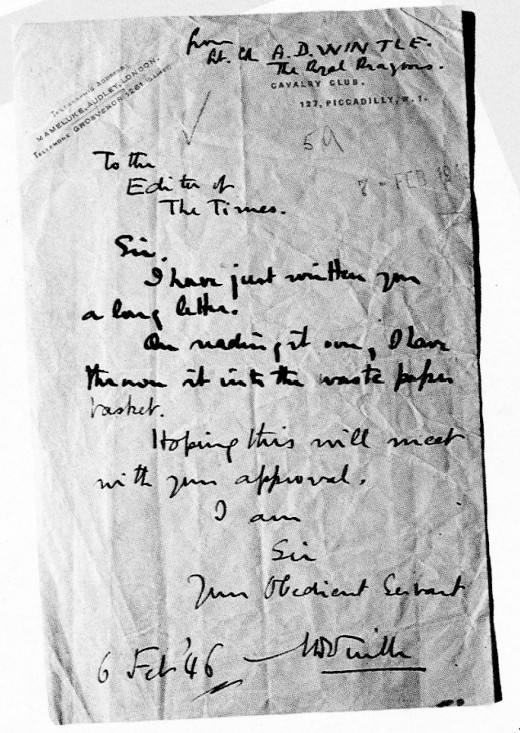 from
Lt. Col A.D. WINTLE.
The Royal Dragoons.
CAVALRY CLUB,
127, PICCADILLY, W.1.
MAMELUKE, AUDLEY, LONDON.
TELEPHONE GROSVENOR 1261
59
7 - FEB 19
To the
Editor of
The Times.
Sir,
I have just written you
a long letter.
On reading it over, I have
thrown it into the waste paper
basket.
Hoping this will meet
with your approval,
I am
Sir
Your Obedient Servant
6 Feb '46
ADWintle